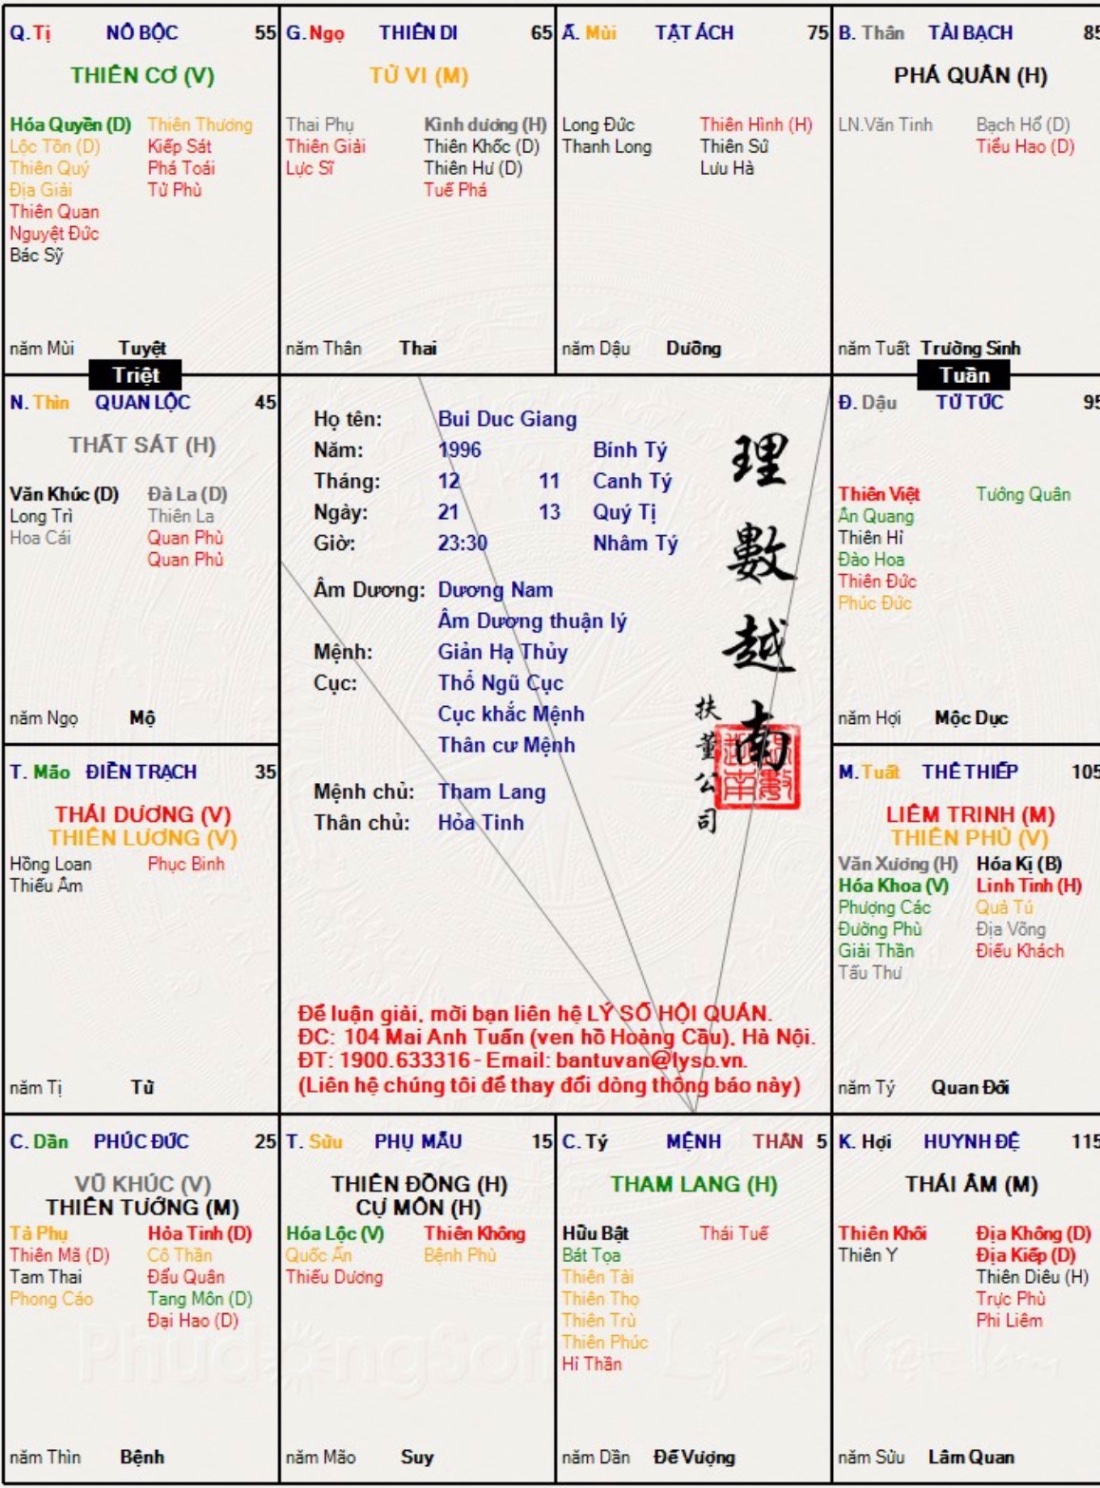 Q.Tị NÔ BỘC 55
THIÊN CƠ (V)
Hóa Quyền (D) Thiên Thương
Lộc Tồn (D) Kiếp Sát
Thiên Quý Phá Toái
Địa Giải Tử Phù
Thiên Quan
Nguyệt Đức
Bác Sỹ
năm Mùi Tuyệt
G.Ngọ THIÊN DI 65
TỬ VI (M)
Thai Phụ Kình dương (H)
Thiên Giải Thiên Khốc (D)
Lực Sĩ Thiên Hư (D)
Tuế Phá
năm Thân Thai
Ấ. Mùi TẬT ÁCH 75
Long Đức Thiên Hình (H)
Thanh Long Thiên Sứ
Lưu Hà
năm Dậu Dưỡng
B. Thân TÀI BẠCH 85
PHÁ QUÂN (H)
LN.Văn Tinh Bạch Hổ (D)
Tiểu Hao (D)
năm Tuất Trường Sinh
Triệt
Tuần
N. Thìn QUAN LỘC 45
THẤT SÁT (H)
Văn Khúc (D) Đà La (D)
Long Trì Thiên La
Hoa Cái Quan Phù
Quan Phủ
năm Ngọ Mộ
Họ tên: Bui Duc Giang
Năm: 1996 Bính Tý
Tháng: 12 11 Canh Tý
Ngày: 21 13 Quý Tị
Giờ: 23:30 Nhâm Tý
Âm Dương: Dương Nam
Âm Dương thuận lý
Mệnh: Giản Hạ Thủy
Cục: Thổ Ngũ Cục
Cục khắc Mệnh
Thân cư Mệnh
Mệnh chủ: Tham Lang
Thân chủ: Hỏa Tinh
理數越南
扶董公司
Đ. Dậu TỬ TỨC 95
Thiên Việt Tướng Quân
Ân Quang
Thiên Hỉ
Đào Hoa
Thiên Đức
Phúc Đức
năm Hợi Mộc Dục
T. Mão ĐIỀN TRẠCH 35
THÁI DƯƠNG (V)
THIÊN LƯƠNG (V)
Hồng Loan Phục Binh
Thiếu Âm
năm Tị Tử
Để luận giải, mời bạn liên hệ LÝ SỐ HỘI QUÁN.
ĐC: 104 Mai Anh Tuấn (ven hồ Hoàng Cầu), Hà Nội.
ĐT: 1900.633316 - Email: bantuvan@lyso.vn.
(Liên hệ chúng tôi để thay đổi dòng thông báo này)
M.Tuất THÊ THIẾP 105
LIÊM TRINH (M)
THIÊN PHỦ (V)
Văn Xương (H) Hóa Kị (B)
Hóa Khoa (V) Linh Tinh (H)
Phượng Các Quả Tú
Đường Phù Địa Võng
Giải Thần Điếu Khách
Tấu Thư
năm Tý Quan Đới
C. Dần PHÚC ĐỨC 25
VŨ KHÚC (V)
THIÊN TƯỚNG (M)
Tả Phụ Hỏa Tinh (D)
Thiên Mã (D) Cô Thần
Tam Thai Đẩu Quân
Phong Cáo Tang Môn (D)
Đại Hao (D)
năm Thìn Bệnh
T. Sửu PHỤ MẪU 15
THIÊN ĐỒNG (H)
CỰ MÔN (H)
Hóa Lộc (V) Thiên Không
Quốc Ấn Bệnh Phù
Thiếu Dương
năm Mão Suy
C. Tý MỆNH THÂN 5
THAM LANG (H)
Hữu Bật Thái Tuế
Bát Tọa
Thiên Tài
Thiên Thọ
Thiên Trù
Thiên Phúc
Hỉ Thần
năm Dần Đế Vượng
K. Hợi HUYNH ĐỆ 115
THÁI ÂM (M)
Thiên Khôi Địa Không (D)
Thiên Y Địa Kiếp (D)
Thiên Diêu (H)
Trực Phù
Phi Liêm
năm Sửu Lâm Quan